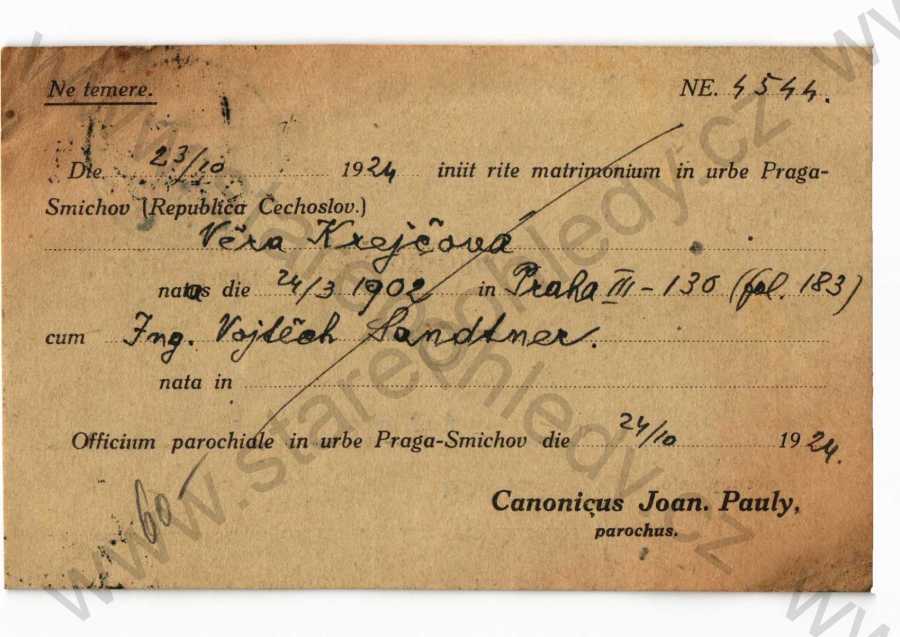 Ne temere.
NE. 4544.
Die 23/10 1924 iniit rite matrimonium in urbe Praga-
Smichov (Republica Čechoslov.)
Věra Krejčová
natas die 24/3 1902 in Praha III - 136 (fol. 183)
cum Ing. Vojtěch Sandtner.
nata in
Officium parochiale in urbe Praga-Smichov die 24/10 1924.
Canonicus Joan. Pauly,
parochus.
60
www.starepohledy.cz
www.starepohledy.cz